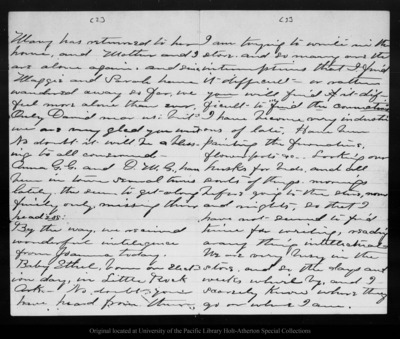 (2)
Mary has returned to her
home, and Mother and I
are alone again. and since
Maggie and Sarah have
wandered away so far, we
feel more alone than ever.
Only David near us:
we are very glad you
No doubt it will be a bless-
ing to all concerned—
G.G. and D.M.G. have
been in town several times
lately, they seem to get along
finely only missing their
By the way, we received
wonderful intelligence
from Joanna today.
Baby Ethel, born on Elect-
ion day, in Little Rock
Ark— No doubt you
have heard from them,
(3)
I am trying to write in the
store, and so many are the
interruptions that I find
it difficult— or rather
you will find it dif-
ficult to find the connection
I have been very industri
ous, of late. Have been
painting the furniture,
flower pots &c. Looking over
books for Prof. and all
sorts of things, mornings
before going to the store, noons
and nights, so that I
have not seemed to find
time for writing, reading
or any thing intellectual
We are very busy in the
store, and so the days and
weeks, whirl by, and I
scarcely know where they
go or where I am.
Original located at University of the Pacific Library Holt-Atherton Special Collections